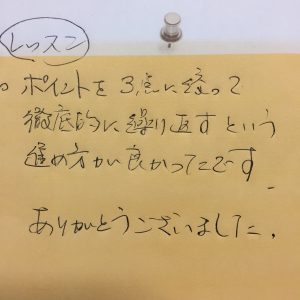 レッスン
○ポイントを3点に絞って
徹底的に繰り返すという
進め方が良かったです.
ありがとうございました.